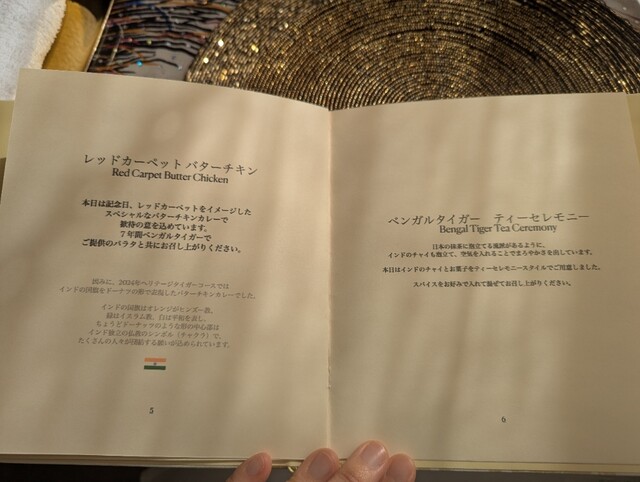 レッドカーペット バターチキン
Red Carpet Butter Chicken
本日は記念日、レッドカーペットをイメージした
スペシャルなバターチキンカレーで
歓待の意を込めています。
7年間ベンガルタイガーで
ご提供のパラタと共にお召し上がりください。
因みに、2024年ヘリテージタイガーコースでは
インドの国旗をドーナツの形で表現したバターチキンカレーでした。
インドの国旗はオレンジがヒンズー教、
緑はイスラム教、白は平和を表し、
ちょうどドーナッツのような形の中心部は
インド独立の仏教のシンボル(チャクラ)で、
たくさんの人々が共存する願いが込められています。
5
ベンガルタイガー ティーセレモニー
Bengal Tiger Tea Ceremony
日本の抹茶に泡立てる流派があるように、
インドのチャイも泡立て、空気を入れることでまろやかさを出しています。
本日はインドのチャイとお菓子をティーセレモニースタイルでご用意しました。
スパイスをお好みで入れて混ぜてお召し上がりください。
6